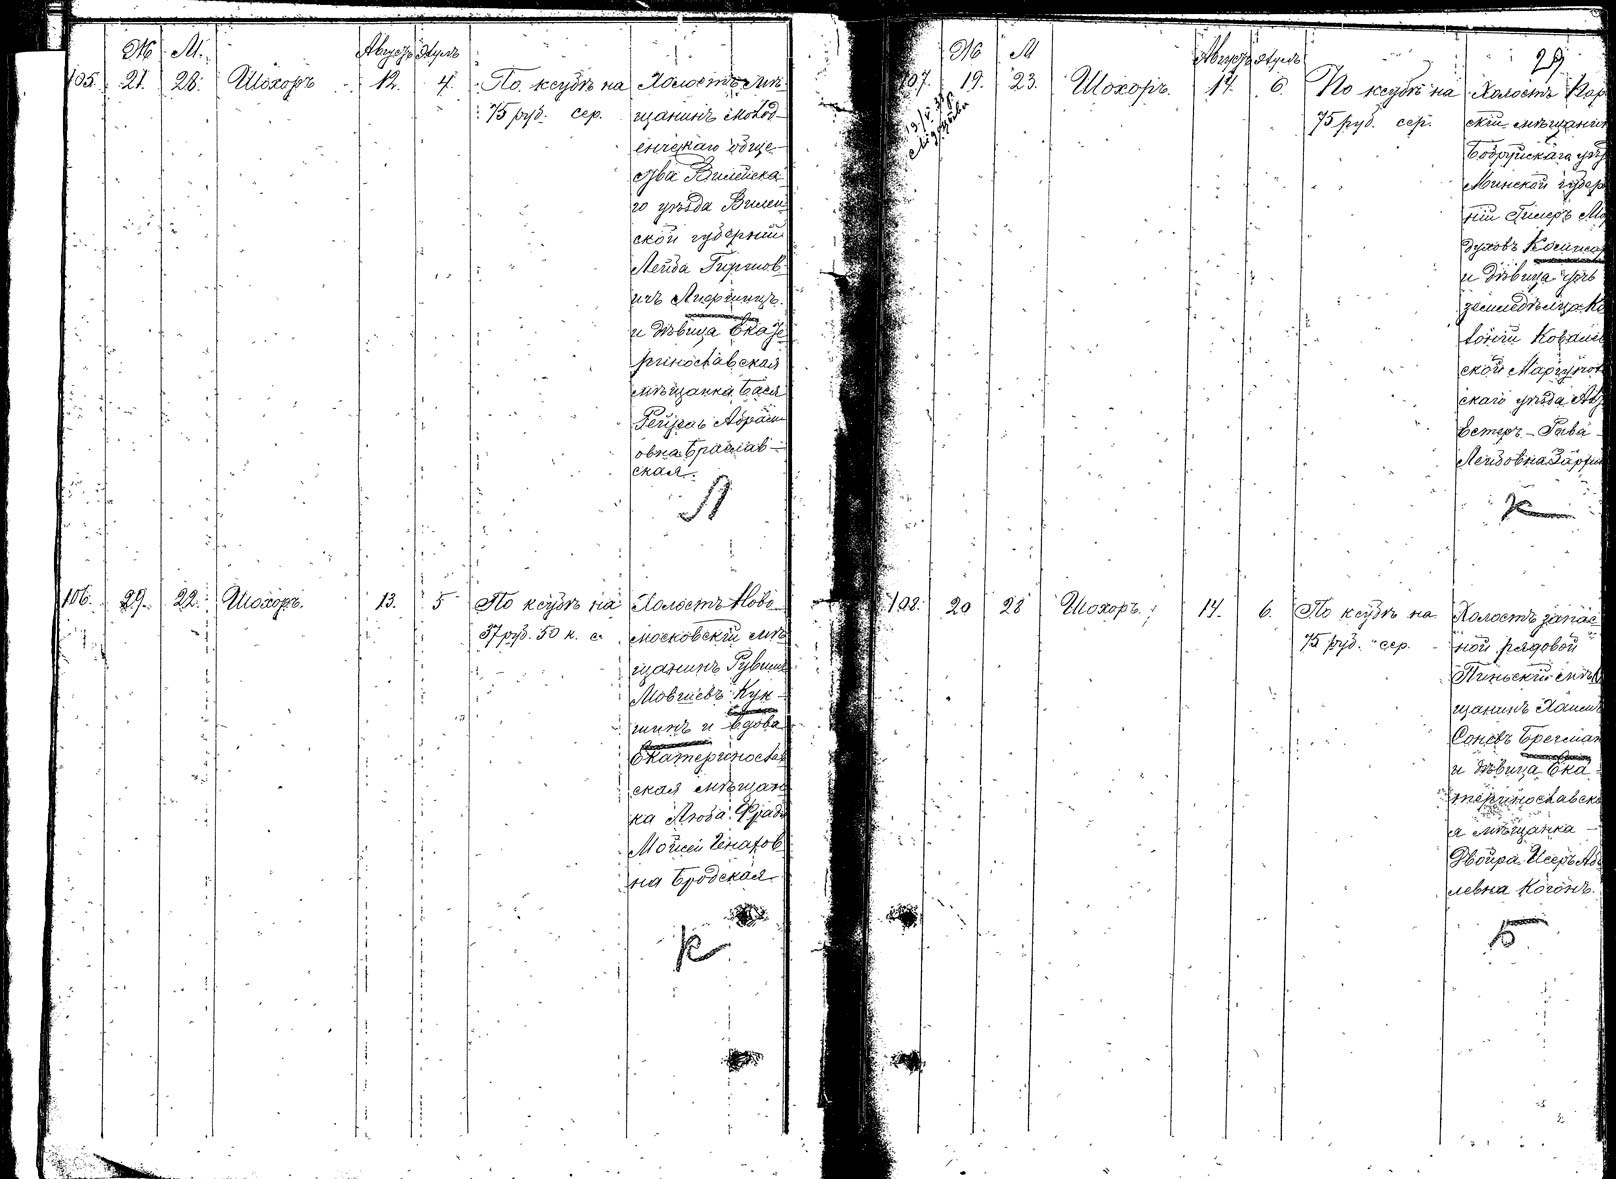 Ж М. Августъ Элулъ
105. 21. 28. Шохоръ 12. 4. По ксубѣ на
75 руб. сер.
Холостъ мѣ-
щанинъ Молод-
ечнскаго обще-
ства Вилейска-
го уѣзда Вилен-
ской губерніи
Лейба Гиршов-
ичъ Лифшицъ
и дѣвица Екате-
ринославская
мѣщанка Бася
Рейзель Абрам-
овна Браслав-
ская.
Л
106. 29. 22. Шохоръ. 13. 5 По ксубѣ на
37 руб. 50 к. с.
Холостъ Ново-
московскій мѣ-
щанинъ Рувинъ
Мовшевъ Кук-
шинъ и вдова
Екатеринослав-
ская мѣщан-
ка Люба Фрада
Мойсей
на Бродская
К
29
Ж М Августъ Элулъ
107. 19. 23. Шохоръ. 14. 6. По ксубѣ на
75 руб. сер.
Холостъ
скій мѣщанин
Бобруйскаго уѣз
Минской губер
ніи Гилеръ Мо
духовъ
и дѣвица дочь
земледѣльца Ко
лоніи Ковалев
ской Маріупол
скаго уѣзда
Естеръ-Рива
Лейбовна
К
108. 20 28 Шохоръ. 14. 6. По ксубѣ на
75 руб. сер.
Холостъ запас-
ной рядовой
Пинскій мѣ-
щанинъ Хаимъ
Брегман
и дѣвица Ека-
теринославска
я мѣщанка
Двойра Исеръ Аб
левна Когонъ.
Б